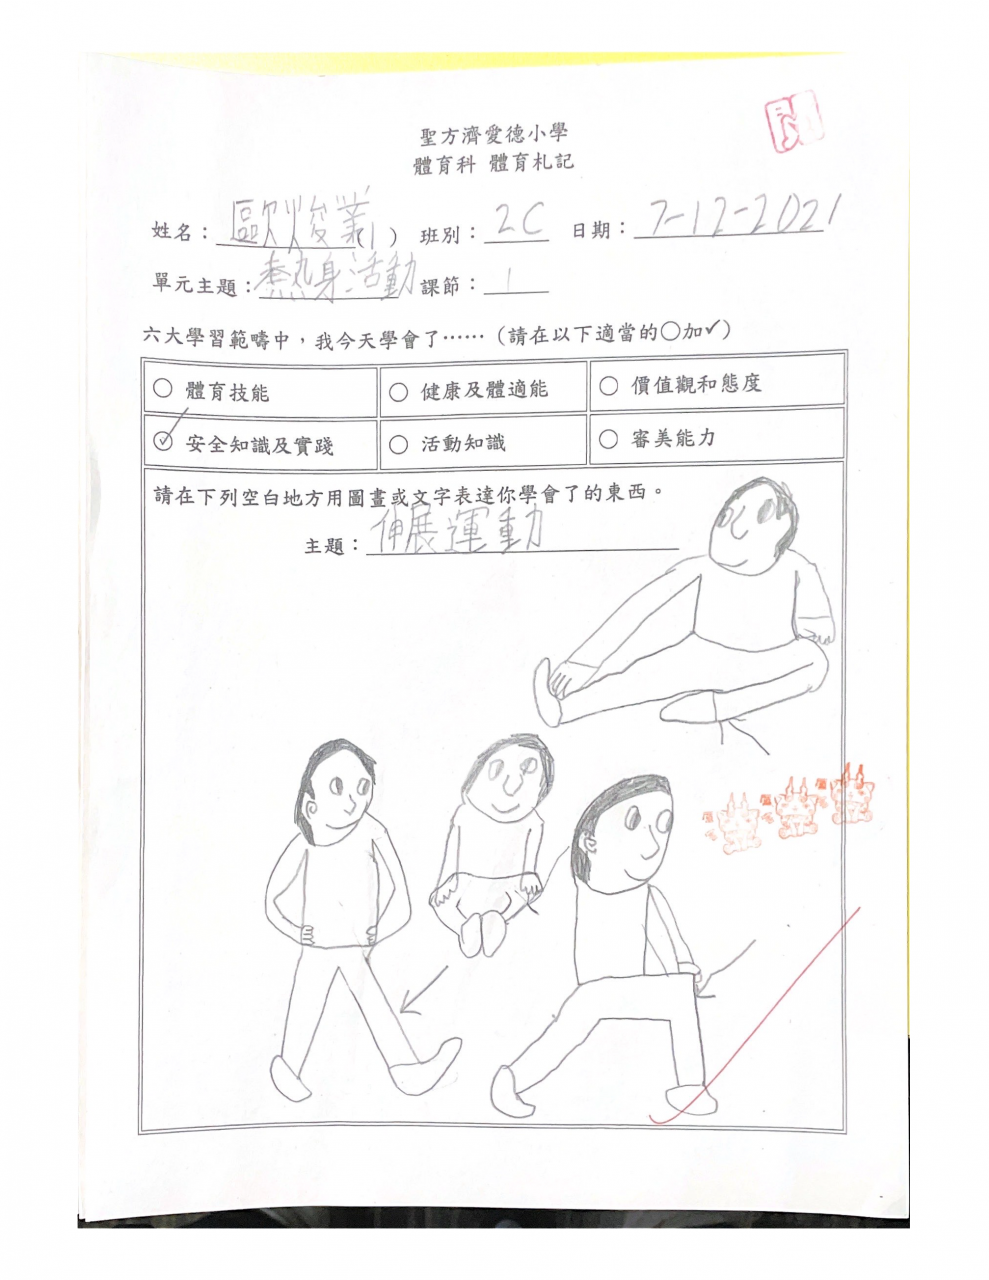 聖方濟愛德小學
體育科 體育札記
姓名：歐焌業(1) 班別：2C 日期：7-12-2021
單元主題：熱身活動 課節：1
六大學習範疇中，我今天學會了……（請在以下適當的○加✓）
○ 體育技能 ○ 健康及體適能 ○ 價值觀和態度
✓ 安全知識及實踐 ○ 活動知識 ○ 審美能力
請在下列空白地方用圖畫或文字表達你學會了的東西。
主題：伸展運動